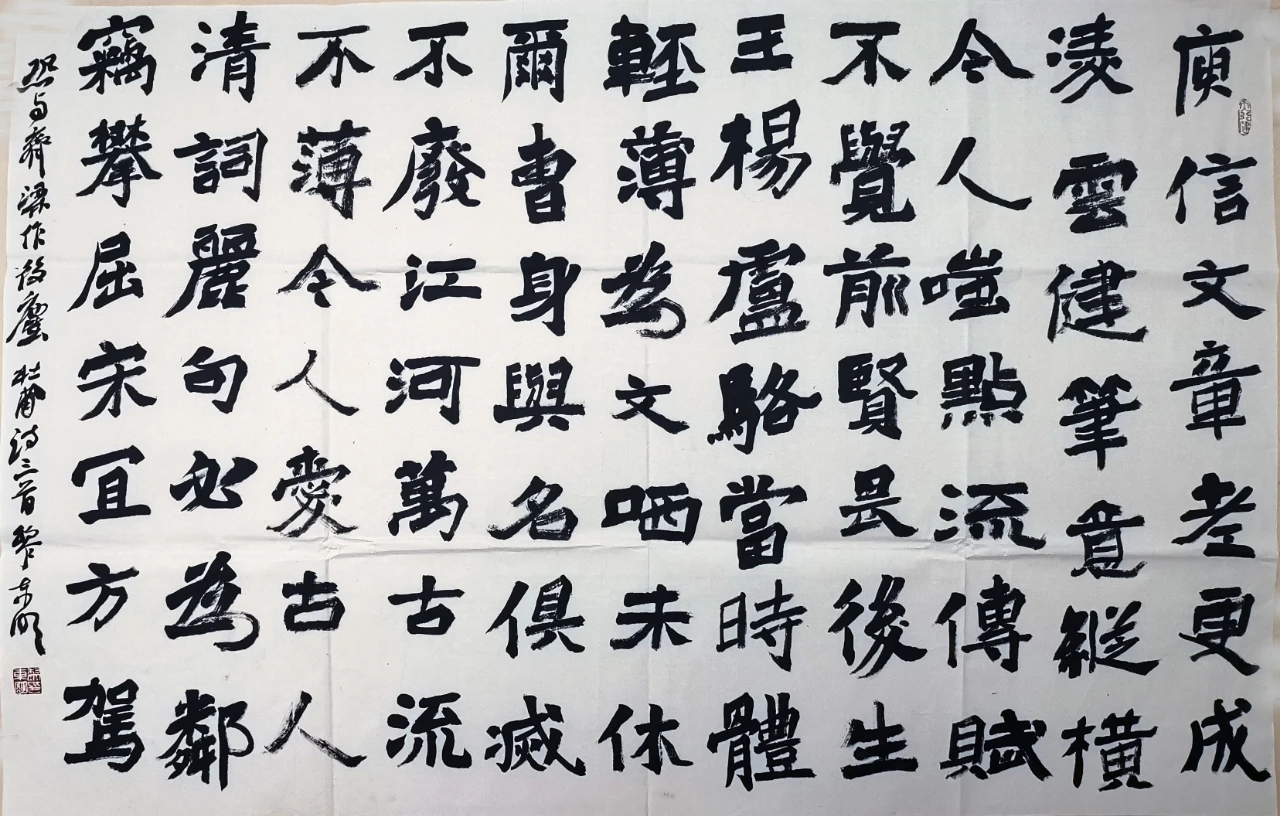 庾信文章老更成
凌雲健筆意縱橫
今人嗤點流傳賦
不覺前賢畏後生
王楊盧駱當時體
輕薄為文哂未休
爾曹身與名俱滅
不廢江河萬古流
不薄今人愛古人
清詞麗句必為鄰
竊攀屈宋宜方駕
恐與齊梁作後塵 杜甫詩三首 黎東明